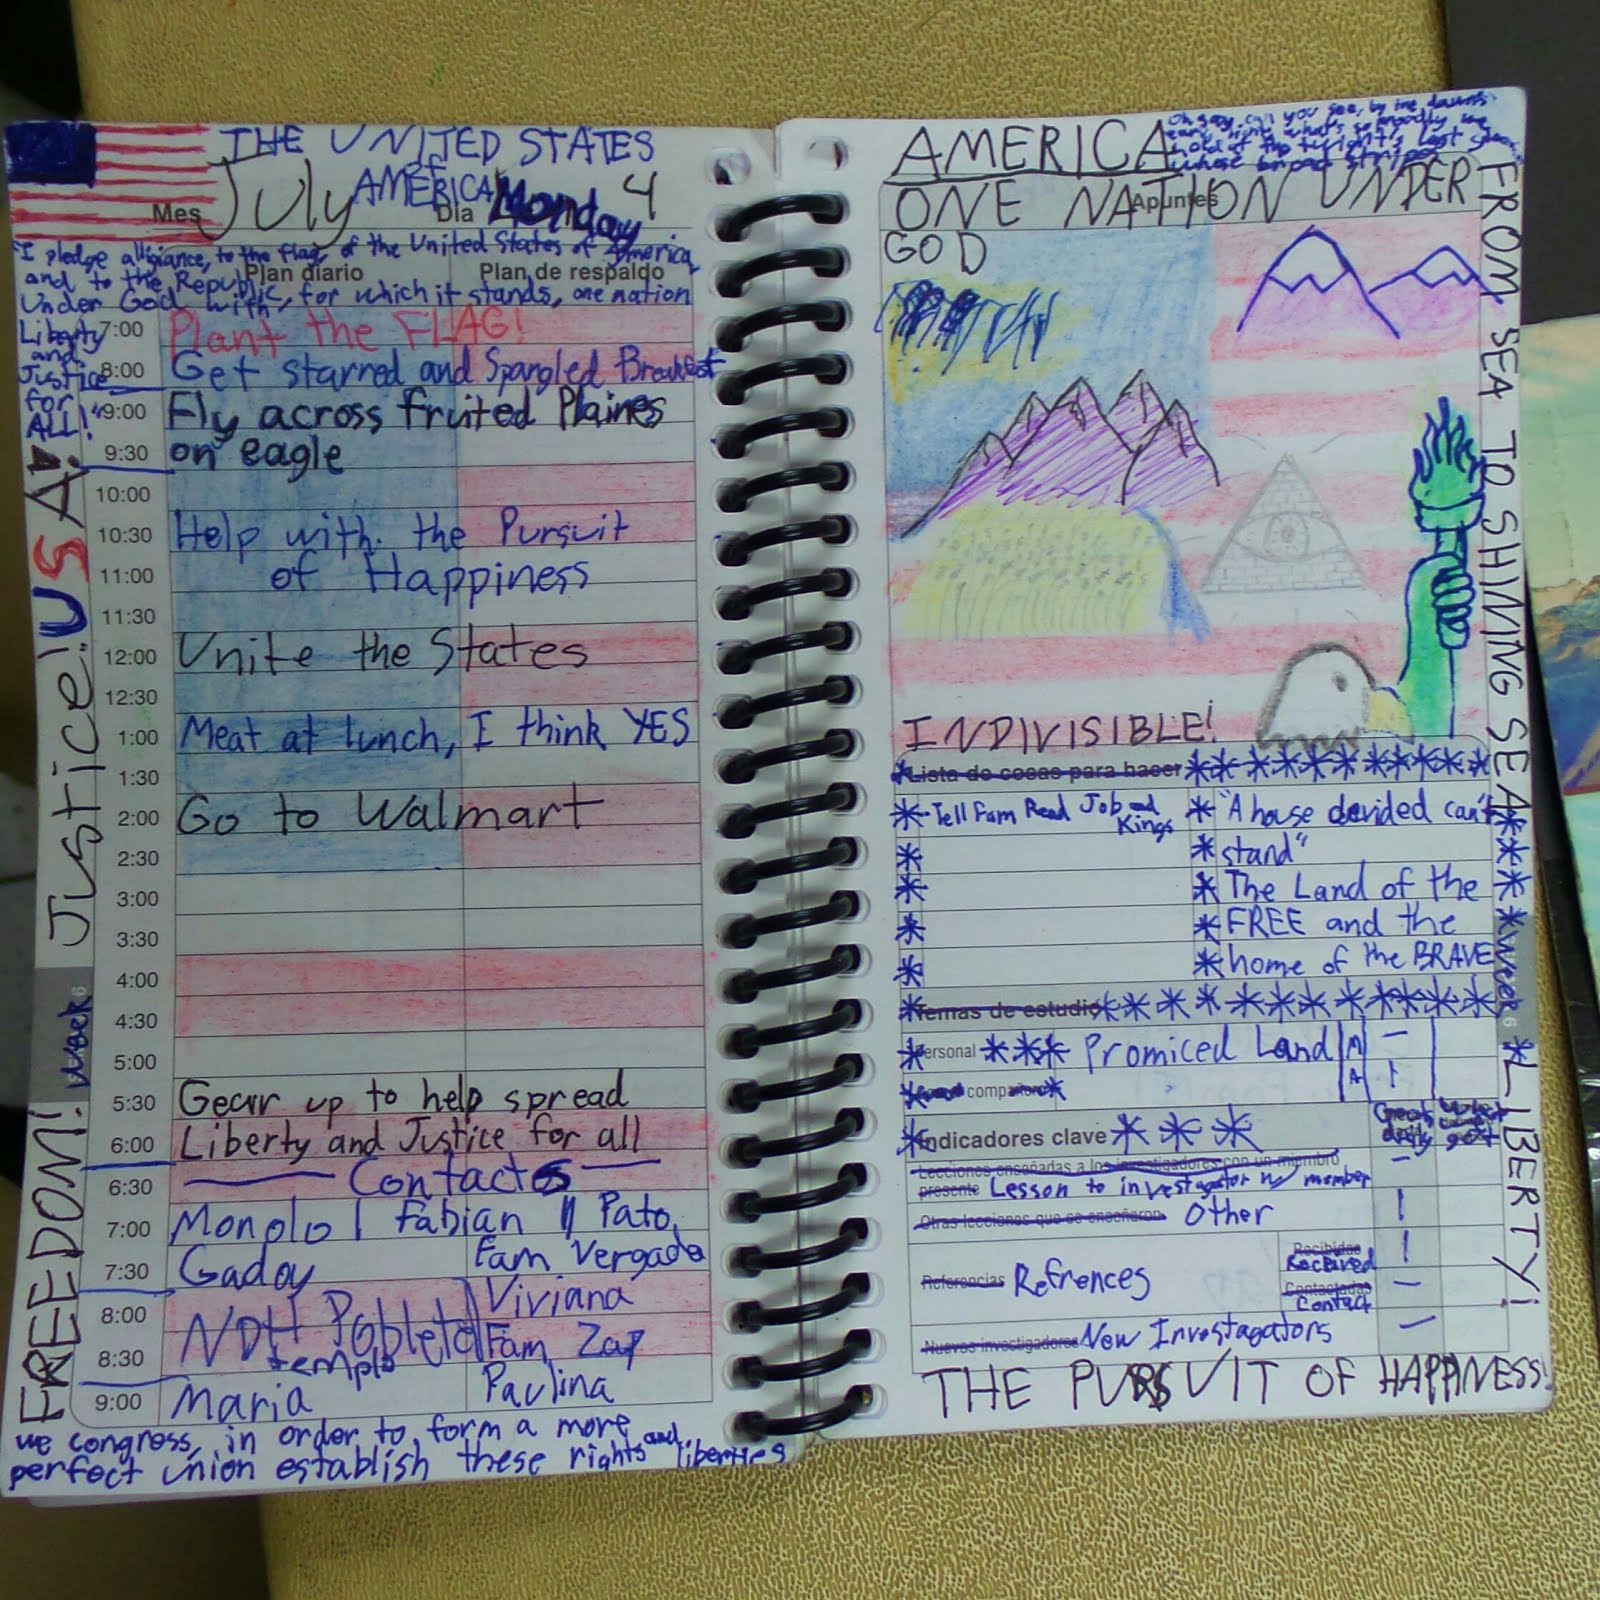 THE UNITED STATES
OF
AMERICA
Mes July Día Monday 4
"I pledge alligiance, to the flag, of the United States of America,
and to the Republic, for which it stands, one nation
Under God with
Liberty
and
Justice
for
ALL!"
Plan diario Plan de respaldo
7:00 Plant the FLAG!
8:00 Get starred and Spangled Breakfast
9:00 Fly across fruited Plaines
9:30 on eagle
10:00
10:30 Help with the Pursuit
11:00 of Happiness
11:30
12:00 Unite the States
12:30
1:00 Meat at lunch, I think YES
1:30
2:00 Go to Walmart
2:30
3:00
3:30
4:00
4:30
5:00
5:30 Gear up to help spread
6:00 Liberty and Justice for all
6:30 Contacts
7:00 Monolo | Fabian || Pato,
7:30 Gadoy Fam Vergada
8:00 NDH Pobleto Viviana
8:30 templo Fam Zap
9:00 Maria Paulina
we congress, in order to form a more
perfect union establish these rights and liberties
FREEDOM! Justice! USA!
Week 6
AMERICA
Oh say can you see, by the dawns
early light what's so proudly we
at the twilight's last
whose broad stripes
ONE NATION UNDER
Apuntes
GOD
INDIVISIBLE!
FROM SEA TO SHINING SEA
Week 6
LIBERTY!
Lista de cosas para hacer
Tell Fam Read Job and
Kings
"A house devided can't
stand"
The Land of the
FREE and the
home of the BRAVE
Temas de estudio
Personal Promiced Land
compañero
Indicadores clave
Lecciones enseñadas a los investigadores con un miembro
presente Lesson to investagator w/ member
Otras lecciones que se enseñaron Other
Referencias Refrences
Recibidas
Recieved
Contactadas
Contact
Nuevos investigadores New Investagators
THE PURSUIT OF HAPPINESS!